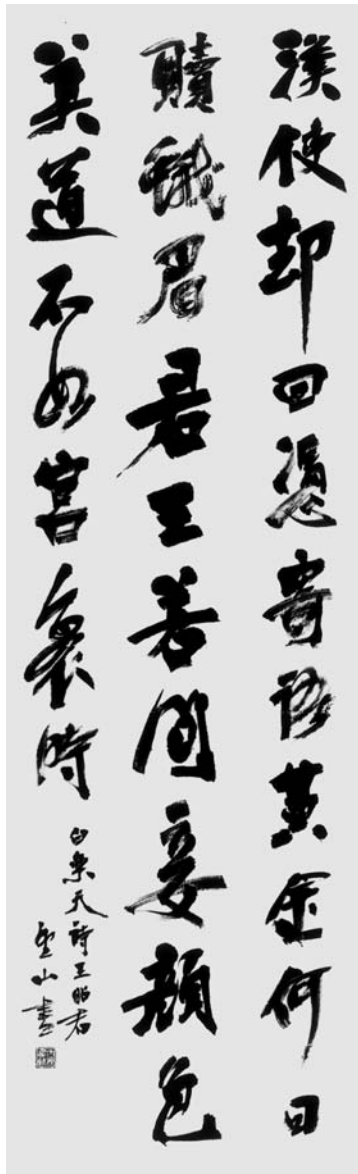 漢使却回憑寄語黄金何日
贖蛾眉君王若問妾顔色
莫道不如宮裏時
白樂天詩王昭君
山書